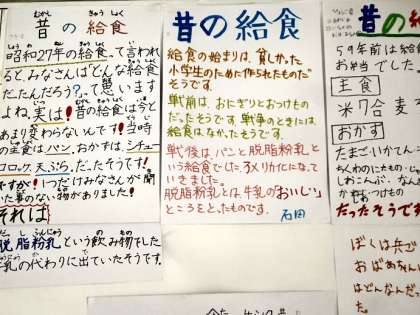 昔の給食
昭和27年の給食って言われ
ると、みなさんはどんな給食
だったんだろう?って思います
よね。実は!昔の給食は今と
あまり変わらないんです!当時
の主食はパン、おかずは、シチュー
コロッケ、天ぷら、だったそうです!
ですが!1つだけみなさんが聞
いた事のない物がありました!
それは
脱脂粉乳という飲み物でした
牛乳の代わりに出ていたそうです。
昔の給食
給食の始まりは、貧しかった
小学生のために作られたものだ
そうです。
戦前は、おにぎりとおつけもの
だったそうです。戦争のときには
給食はなかったそうです。
戦後は、パンと脱脂粉乳と
いう給食でした。アメリカになって
いきました。
脱脂粉乳とは、牛乳の「おいしい」
ところをとったものです。
石田
昔の給
59年前は給
お弁当でした。
主食
米7合麦
おかず
たまご・いか
ちくわのにたもの
しおこんぶ
だったそうで
ぼくは共で
おばあちゃん
はどんなんだ